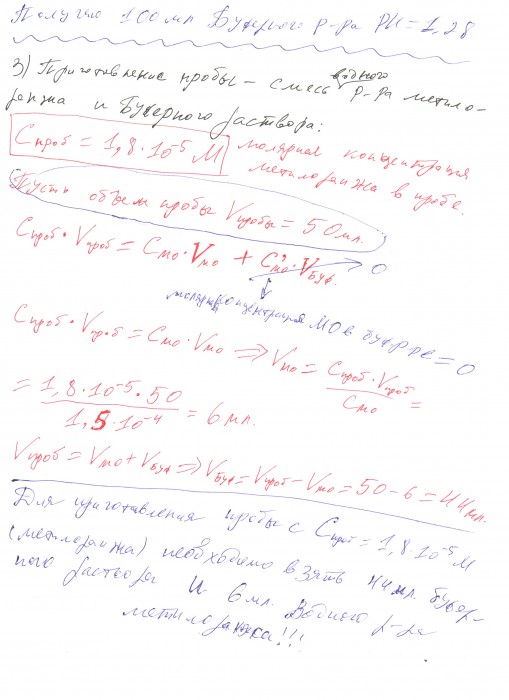 Получаю 100 мл Буферного р-ра PH = 1,28
3) Приготовление пробы – смесь водного р-ра метило-
ранжа и Буферного раствора:
Cпроб = 1,8·10⁻⁵ М молярная концентрация
метилоранжа в пробе.
Пусть объем пробы Vпробы = 50 мл.
Cпроб·Vпроб = Cмо·Vмо + C'мо·Vбуф. → 0
молярная концентрация МО в буфере = 0
Cпроб·Vпроб = Cмо·Vмо ⇒ Vмо = Cпроб·Vпроб / Cмо =
= 1,8·10⁻⁵·50 / 1,5·10⁻⁴ = 6 мл.
Vпроб = Vмо + Vбуф ⇒ Vбуф = Vпроб – Vмо = 50 – 6 = 44 мл.
Для приготавления пробы с Cпроб = 1,8·10⁻⁵ М
(метилоранжа) необходимо взять 44 мл. буфер-
ного раствора и 6 мл. водного р-ра
метилоранжа!!!